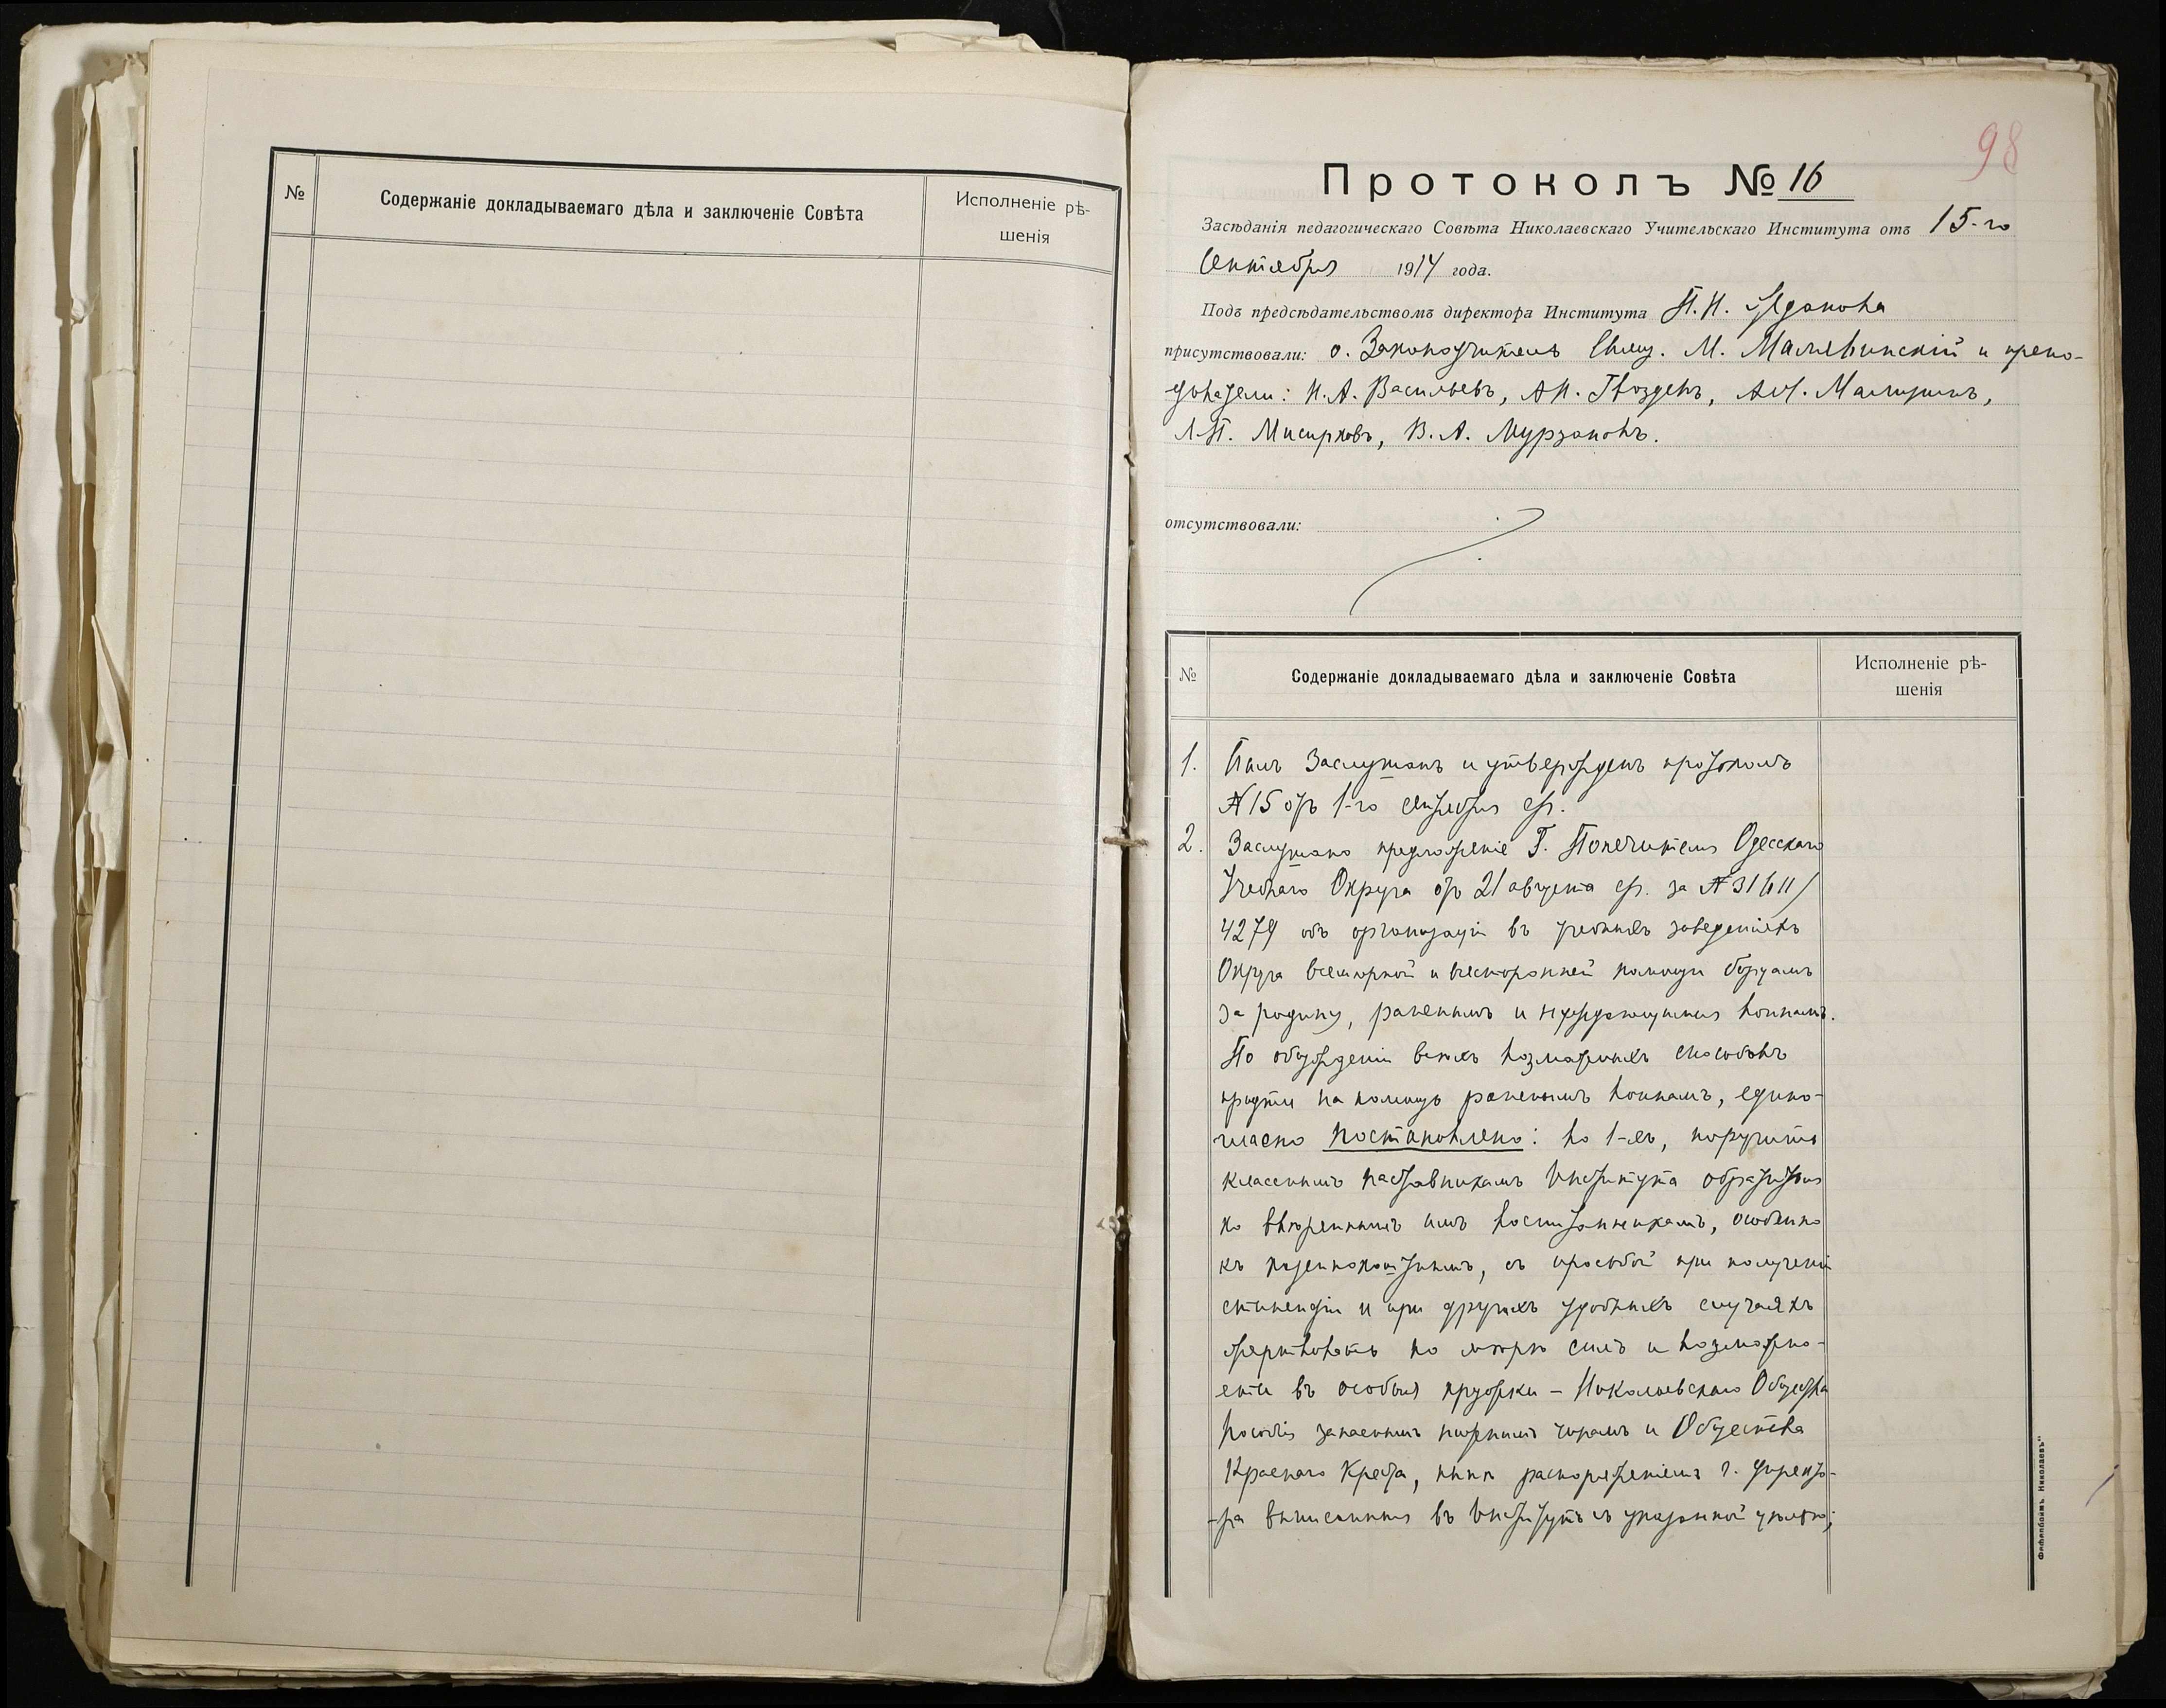 №
Содержаніе докладываемаго дѣла и заключеніе Совѣта
Исполненіе рѣ-
шенія
98
Протоколъ № 16
Засѣданія педагогическаго Совѣта Николаевскаго Учительскаго Института отъ 15-го
Сентября 1914 года.
Подъ предсѣдательствомъ директора Института
присутствовали: о. Законоучитель Свящ. М. Малевинскій и препо-
даватели: Н. А. Васильевъ, А. Н. Гвоздевъ,
Мисирковъ, В. А. Мурзановъ.
отсутствовали:
№
Содержаніе докладываемаго дѣла и заключеніе Совѣта
Исполненіе рѣ-
шенія
1. Былъ Заслушанъ и утвержденъ протоколъ
№ 15 отъ 1-го сентября с/г.
2. Заслушано предложеніе Г. Попечителя Одесскаго
Учебнаго Округа отъ 21 августа с/г. за № 31611/
4279 объ организаціи въ учебныхъ заведеніяхъ
Округа всемѣрной и всесторонней помощи борцамъ
за родину, раненымъ и нуждающимся воинамъ.
По обсужденіи всѣхъ возможныхъ способовъ
придти на помощь раненымъ воинамъ, едино-
гласно постановлено: во 1-хъ, поручить
класснымъ наставникамъ Института обратиться
ко ввѣреннымъ имъ воспитанникамъ, особенно
къ казеннокоштнымъ, съ просьбой при полученіи
стипендіи и при другихъ удобныхъ случаяхъ
жертвовать по мѣрѣ силъ и возможно-
сти въ особыя кружки – Николаевскаго Общества
пособія запаснымъ нижнимъ чинамъ и Общества
Краснаго Креста, нынѣ распоряженіемъ г. Директо-
-ра вывѣшенныя въ Институтѣ съ указанной цѣлью;
Николаевъ"